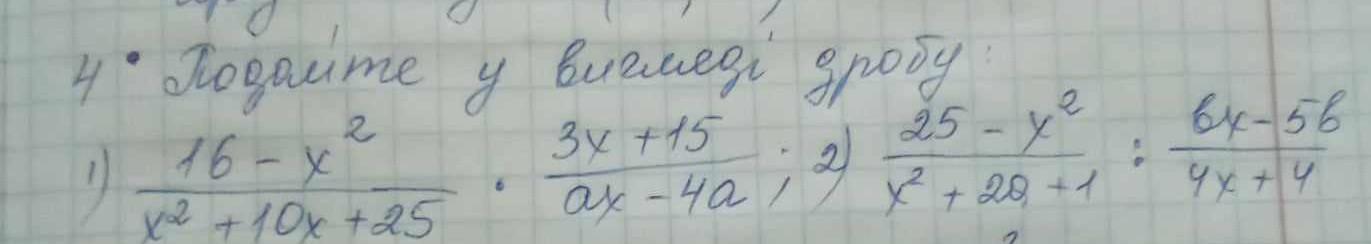 4° Подайте у вигляді дробу:
1) \frac{16 - x^2}{x^2 + 10x + 25} \cdot \frac{3x + 15}{ax - 4a}; 2) \frac{25 - x^2}{x^2 + 2a + 1} : \frac{bx - 5b}{4x + 4}